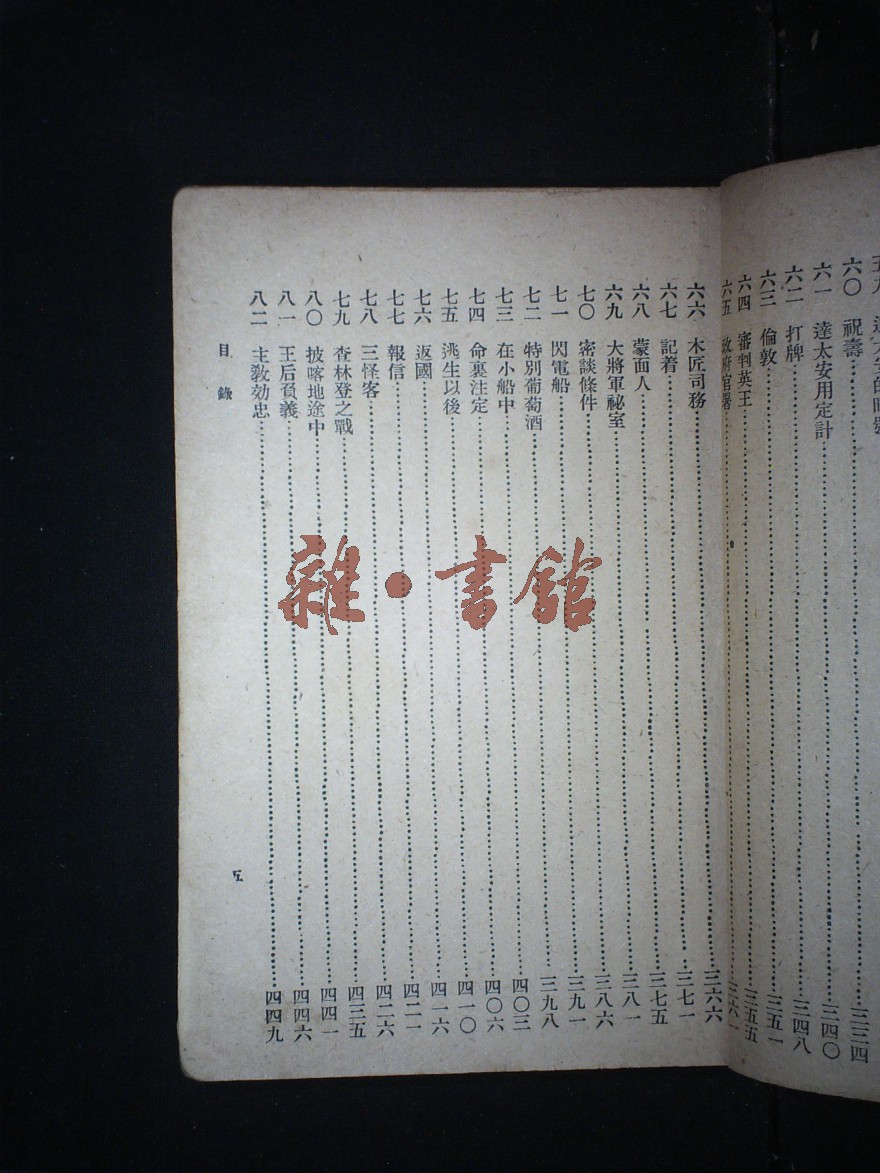 六〇 祝壽……三三四
六一 達太安用定計……三四〇
六二 打牌……三四八
六三 倫敦……三五一
六四 審判英王……三五五
六五 政府官署……三六一
六六 木匠司務……三六六
六七 記着……三七一
六八 蒙面人……三七五
六九 大將軍祕室……三八一
七〇 密談條件……三八六
七一 閃電船……三九一
七二 特別葡萄酒……三九八
七三 在小船中……四〇三
七四 命裏注定……四〇六
七五 逃生以後……四一〇
七六 返國……四一六
七七 報信……四二一
七八 三怪客……四二六
七九 杳林登之戰……四三五
八〇 披喀地途中……四四一
八一 王后負義……四四六
八二 主敎効忠……四四九
目錄 五
雜·書館